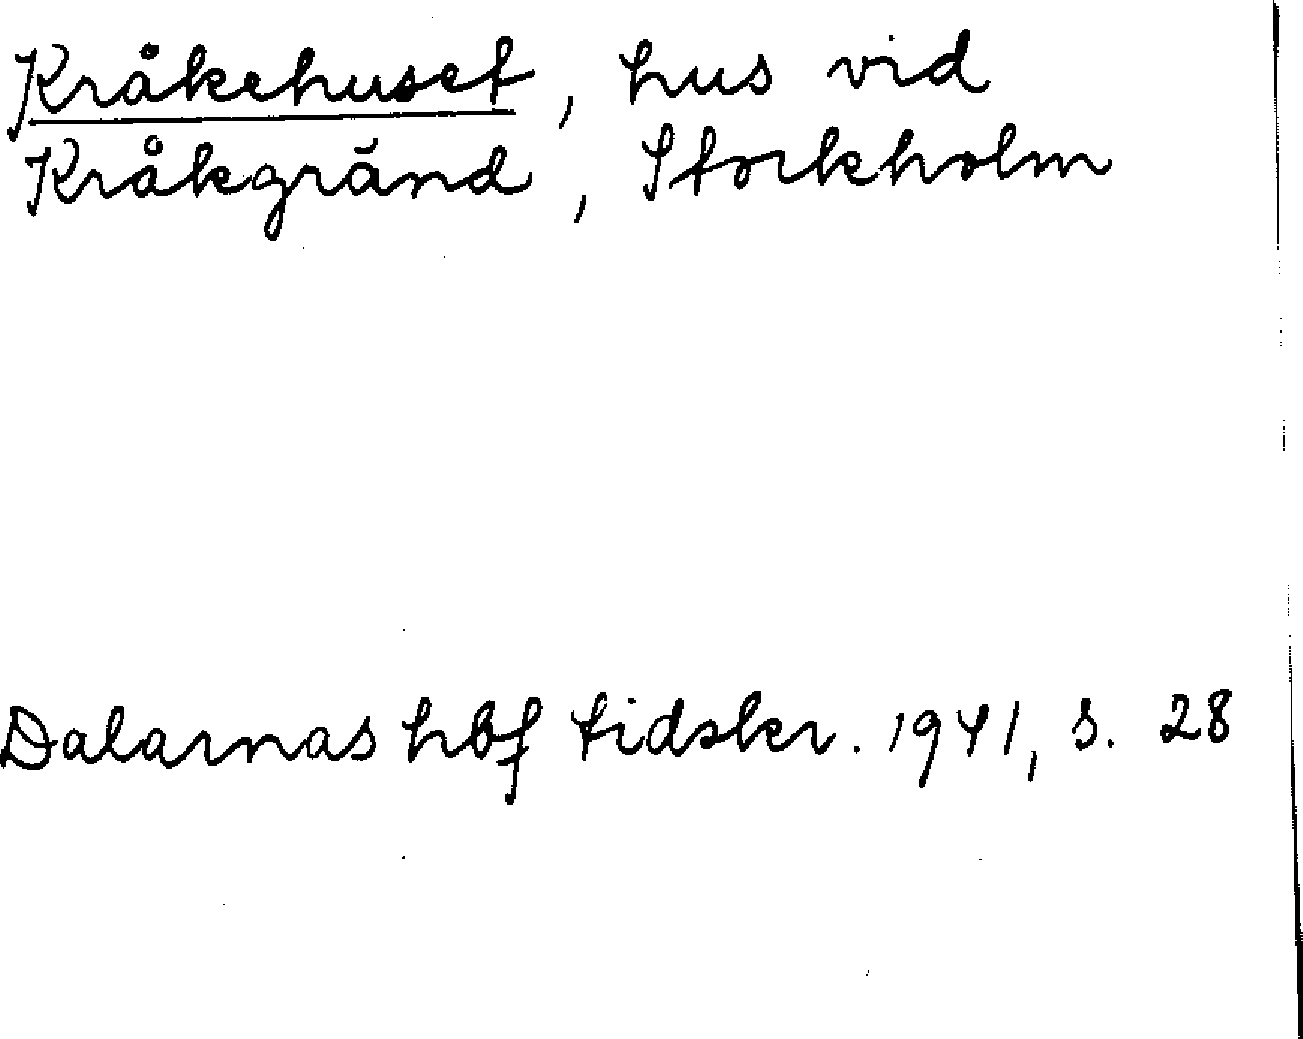 Kråkehuset, hus vid
Kråkgränd, Stockholm
Dalarnas hbf tidskr. 1941, s. 28